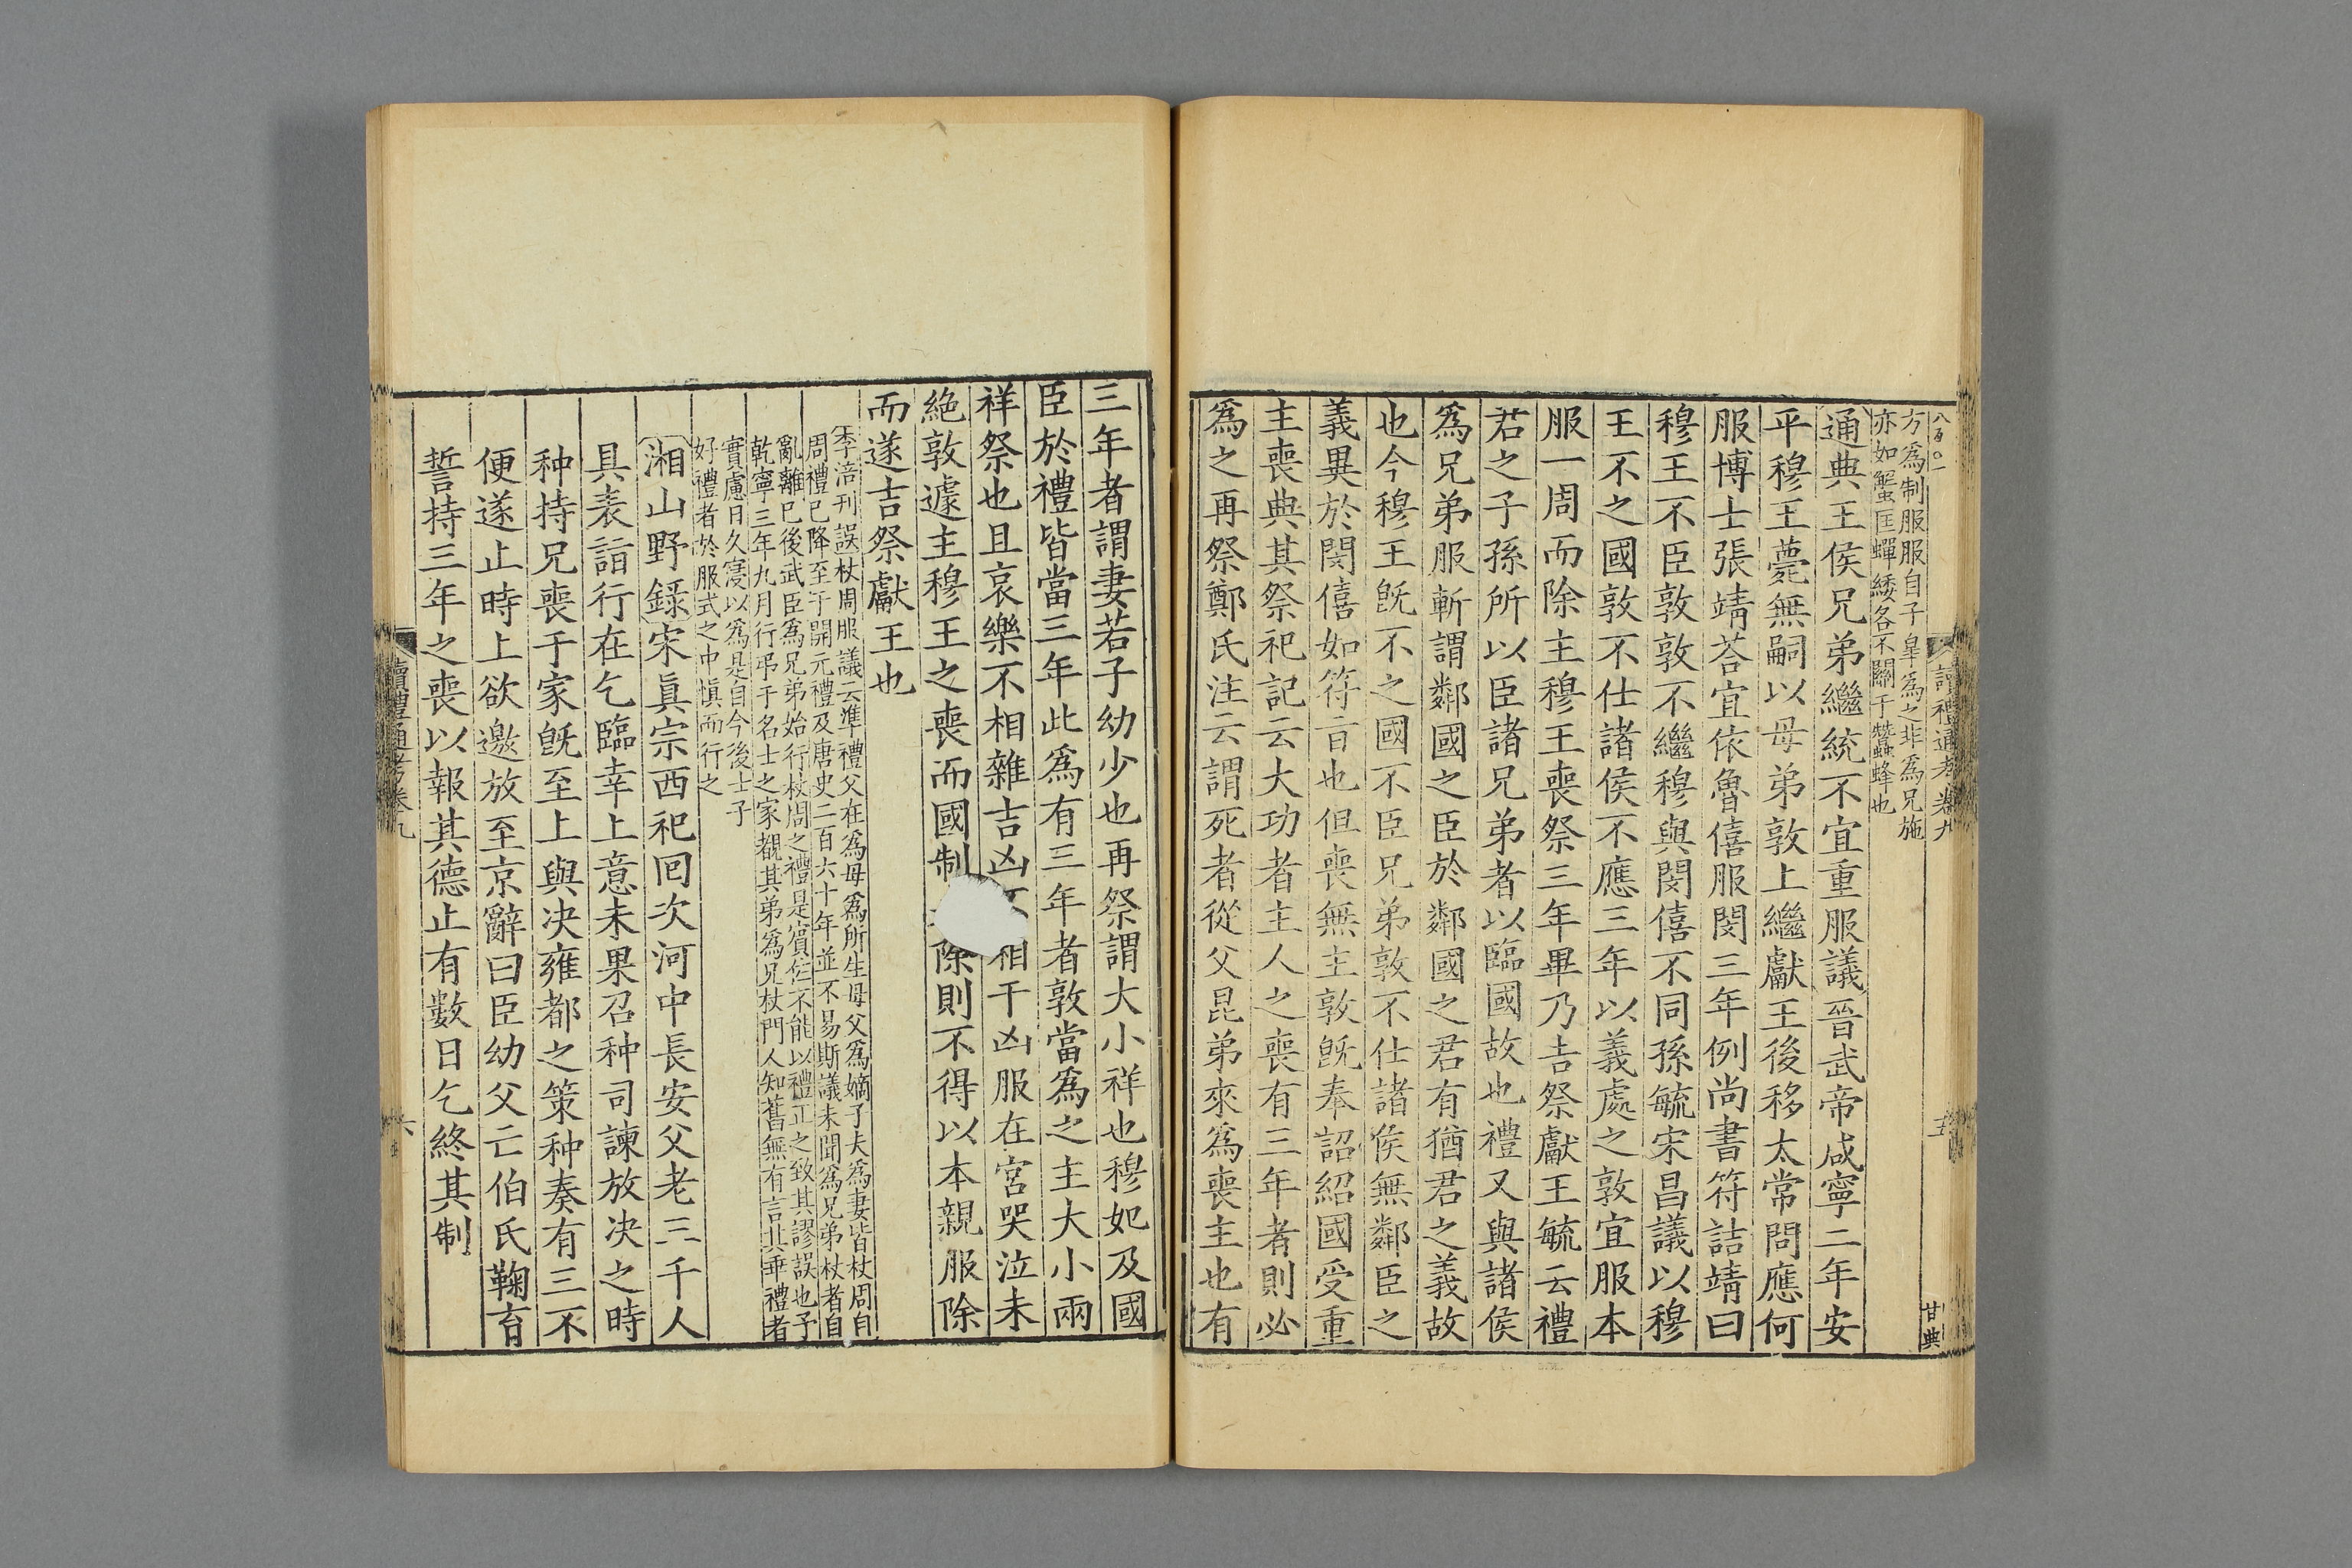 讀禮通考卷九
五
甘典
八百〇一
方為制服服自子臯為之非為兄施
亦如蟹匡蟬緌各不關于蠶蜂也
通典王侯兄弟繼統不宜重服議晉武帝咸寧二年安
平穆王薨無嗣以母弟敦上繼獻王後移太常問應何
服博士張靖荅宜依魯僖服閔三年例尚書符詰靖曰
穆王不臣敦敦不繼穆與閔僖不同孫毓宋昌議以穆
王不之國敦不仕諸侯不應三年以義處之敦宜服本
服一周而除主穆王喪祭三年畢乃吉祭獻王毓云禮
君之子孫所以臣諸兄弟者以臨國故也禮又與諸侯
為兄弟服斬謂鄰國之臣於鄰國之君有猶君之義故
也今穆王旣不之國不臣兄弟敦不仕諸侯無鄰臣之
義異於閔僖如符旨也但喪無主敦旣奉詔紹國受重
主喪典其祭祀記云大功者主人之喪有三年者則必
為之再祭鄭氏注云謂死者從父昆弟來為喪主也有
三年者謂妻若子幼少也再祭謂大小祥也穆妃及國
臣於禮皆當三年此為有三年者敦當為之主大小兩
祥祭也且哀樂不相雜吉凶相干凶服在宮哭泣未
絶敦遽主穆王之喪而國制除則不得以本親服除
而遂吉祭獻王也
李涪刊誤杖周服議云準禮父在為母為所生母父為嫡子夫為妻皆杖周自
周禮已降至于開元禮及唐史二百六十年並不易斯議未聞為兄弟杖者自
亂離已後武臣為兄弟始行杖周之禮是賓佐不能以禮正之致其謬誤也予
乾寧三年九月行弔于名士之家覩其弟為兄杖門人知舊無有言其乖禮者
實慮日久寖以為是自今後士子
好禮者於服式之中愼而行之
湘山野錄宋眞宗西祀囘次河中長安父老三千人
具表詣行在乞臨幸上意未果召种司諫放决之時
种持兄喪于家旣至上與决雍都之策种奏有三不
便遂止時上欲邀放至京辭曰臣幼父亡伯氏鞠育
誓持三年之喪以報其德止有數日乞終其制
讀禮通考卷九
六